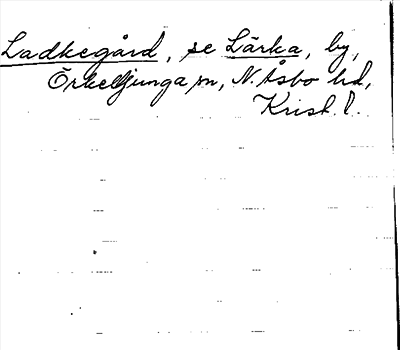 Ladkegård, se Lärka, by,
Örkelljunga sn, N. Åsbo hd,
Krist. l.